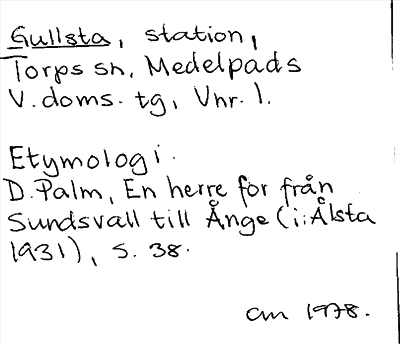 Gullsta, station,
Torps sn, Medelpads
V. doms. tg, Vnr. 1.
Etymologi.
D. Palm, En herre for från
Sundsvall till Ånge (i: Ålsta
1931), s. 38.
am 1978.